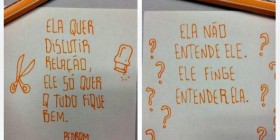 ELA QUER
DISCUTIR
RELAÇÃO,
ELE SÓ QUER
Q TUDO FIQUE
BEM.
PEDROM
ELA NÃO
ENTENDE ELE.
ELE FINGE
ENTENDER ELA.